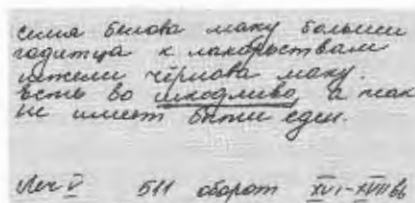 семя белова маку больши
годитца к лакарьствам
нежели чёрнова маку.
есть во шкодливо, а так
не имеет быти еден.
Леч V 511 оборот XVI-XVII вв